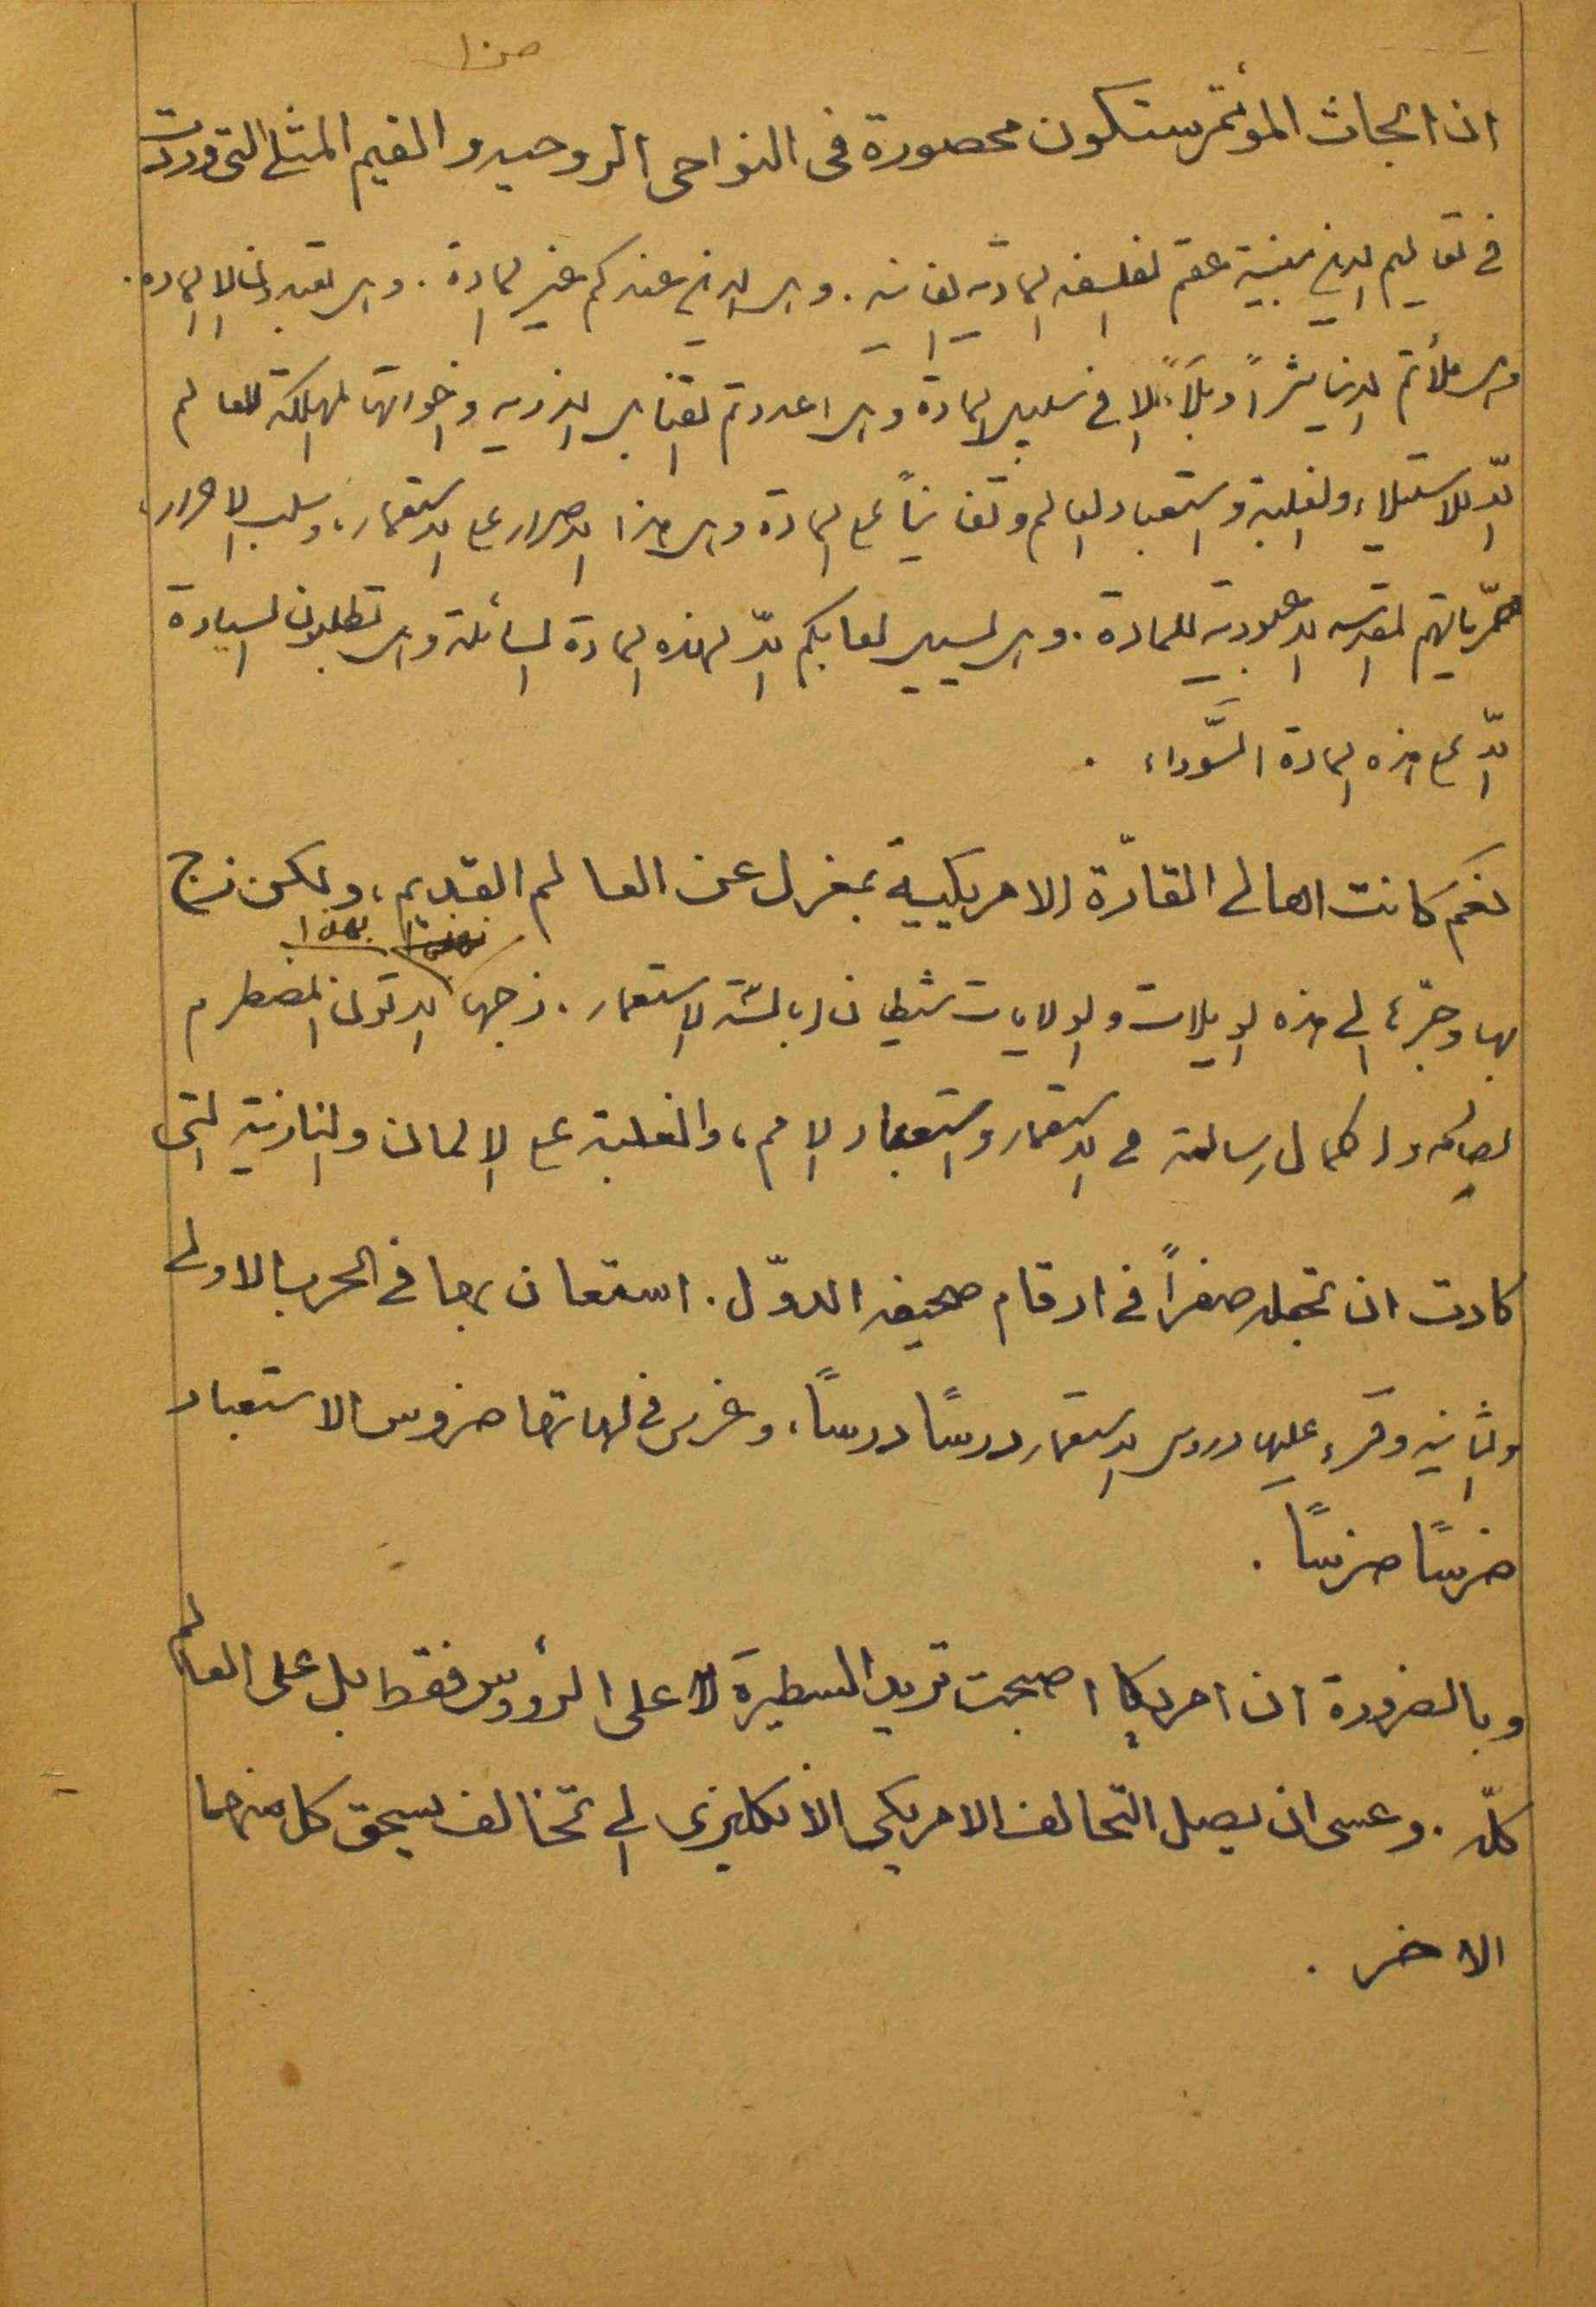 ان ابحاث المؤتمر ستكون محصورة فى النواحى الروحيه والقيم المثلے التى وردت
في تعاليم الدين مبنية عقم الفلسفه المادية الفانيه . وهل الدين عندكم غير المادة . وهل تعبدون الا المادة .
وهل ملأتم الدنيا شراً وبلاءً الا في سبيل المادة وهل اعددتم القنابل الذريه واخواتها المهلكة للعالم
الّا للاستيلاء والغلبة واستعباد العالم وتفانياً على المادة وهل هذا الاصرار على الاستعمار، وسلب الاحرار،
حرّياتهم المقدسه الا عبودية للمادة . وهل يسيل لعابكم الّا لهذه المادة السائلة وهل تطلبون السيادة
الّا على هذه المادة السَّوداء .
نعَم كانت اهالى القارّة الامريكية بمعزل عن العالم القديم، ولكن زج
بها وجرّها الى هذه الويلات والولايات شيطان ابالسة الاستعمار . زجها بهذا الاتون المضطرم
لصالحه واكمال رسالته في الاستعمار واستعباد الامم، والغلبة على الالمان والنازية التى
كادت ان تجعله صفراً في ارقام صحيفه الدوّل . استعان بها في الحرب الاولى
والثانيه وقرء عليها دروس الاستعمار درسًا درسًا، وغرس في لهاتها ضروس الاستعباد
ضرسًا ضرسًا .
وبالضرورة ان امريكا اصبحت تريد السطيرة لا على الرؤوس فقط بل على العالم
كلّه . وعسى ان يصل التحالف الامريكى الانكليزى الى تخالف يسحق كل منهما
الاخر .